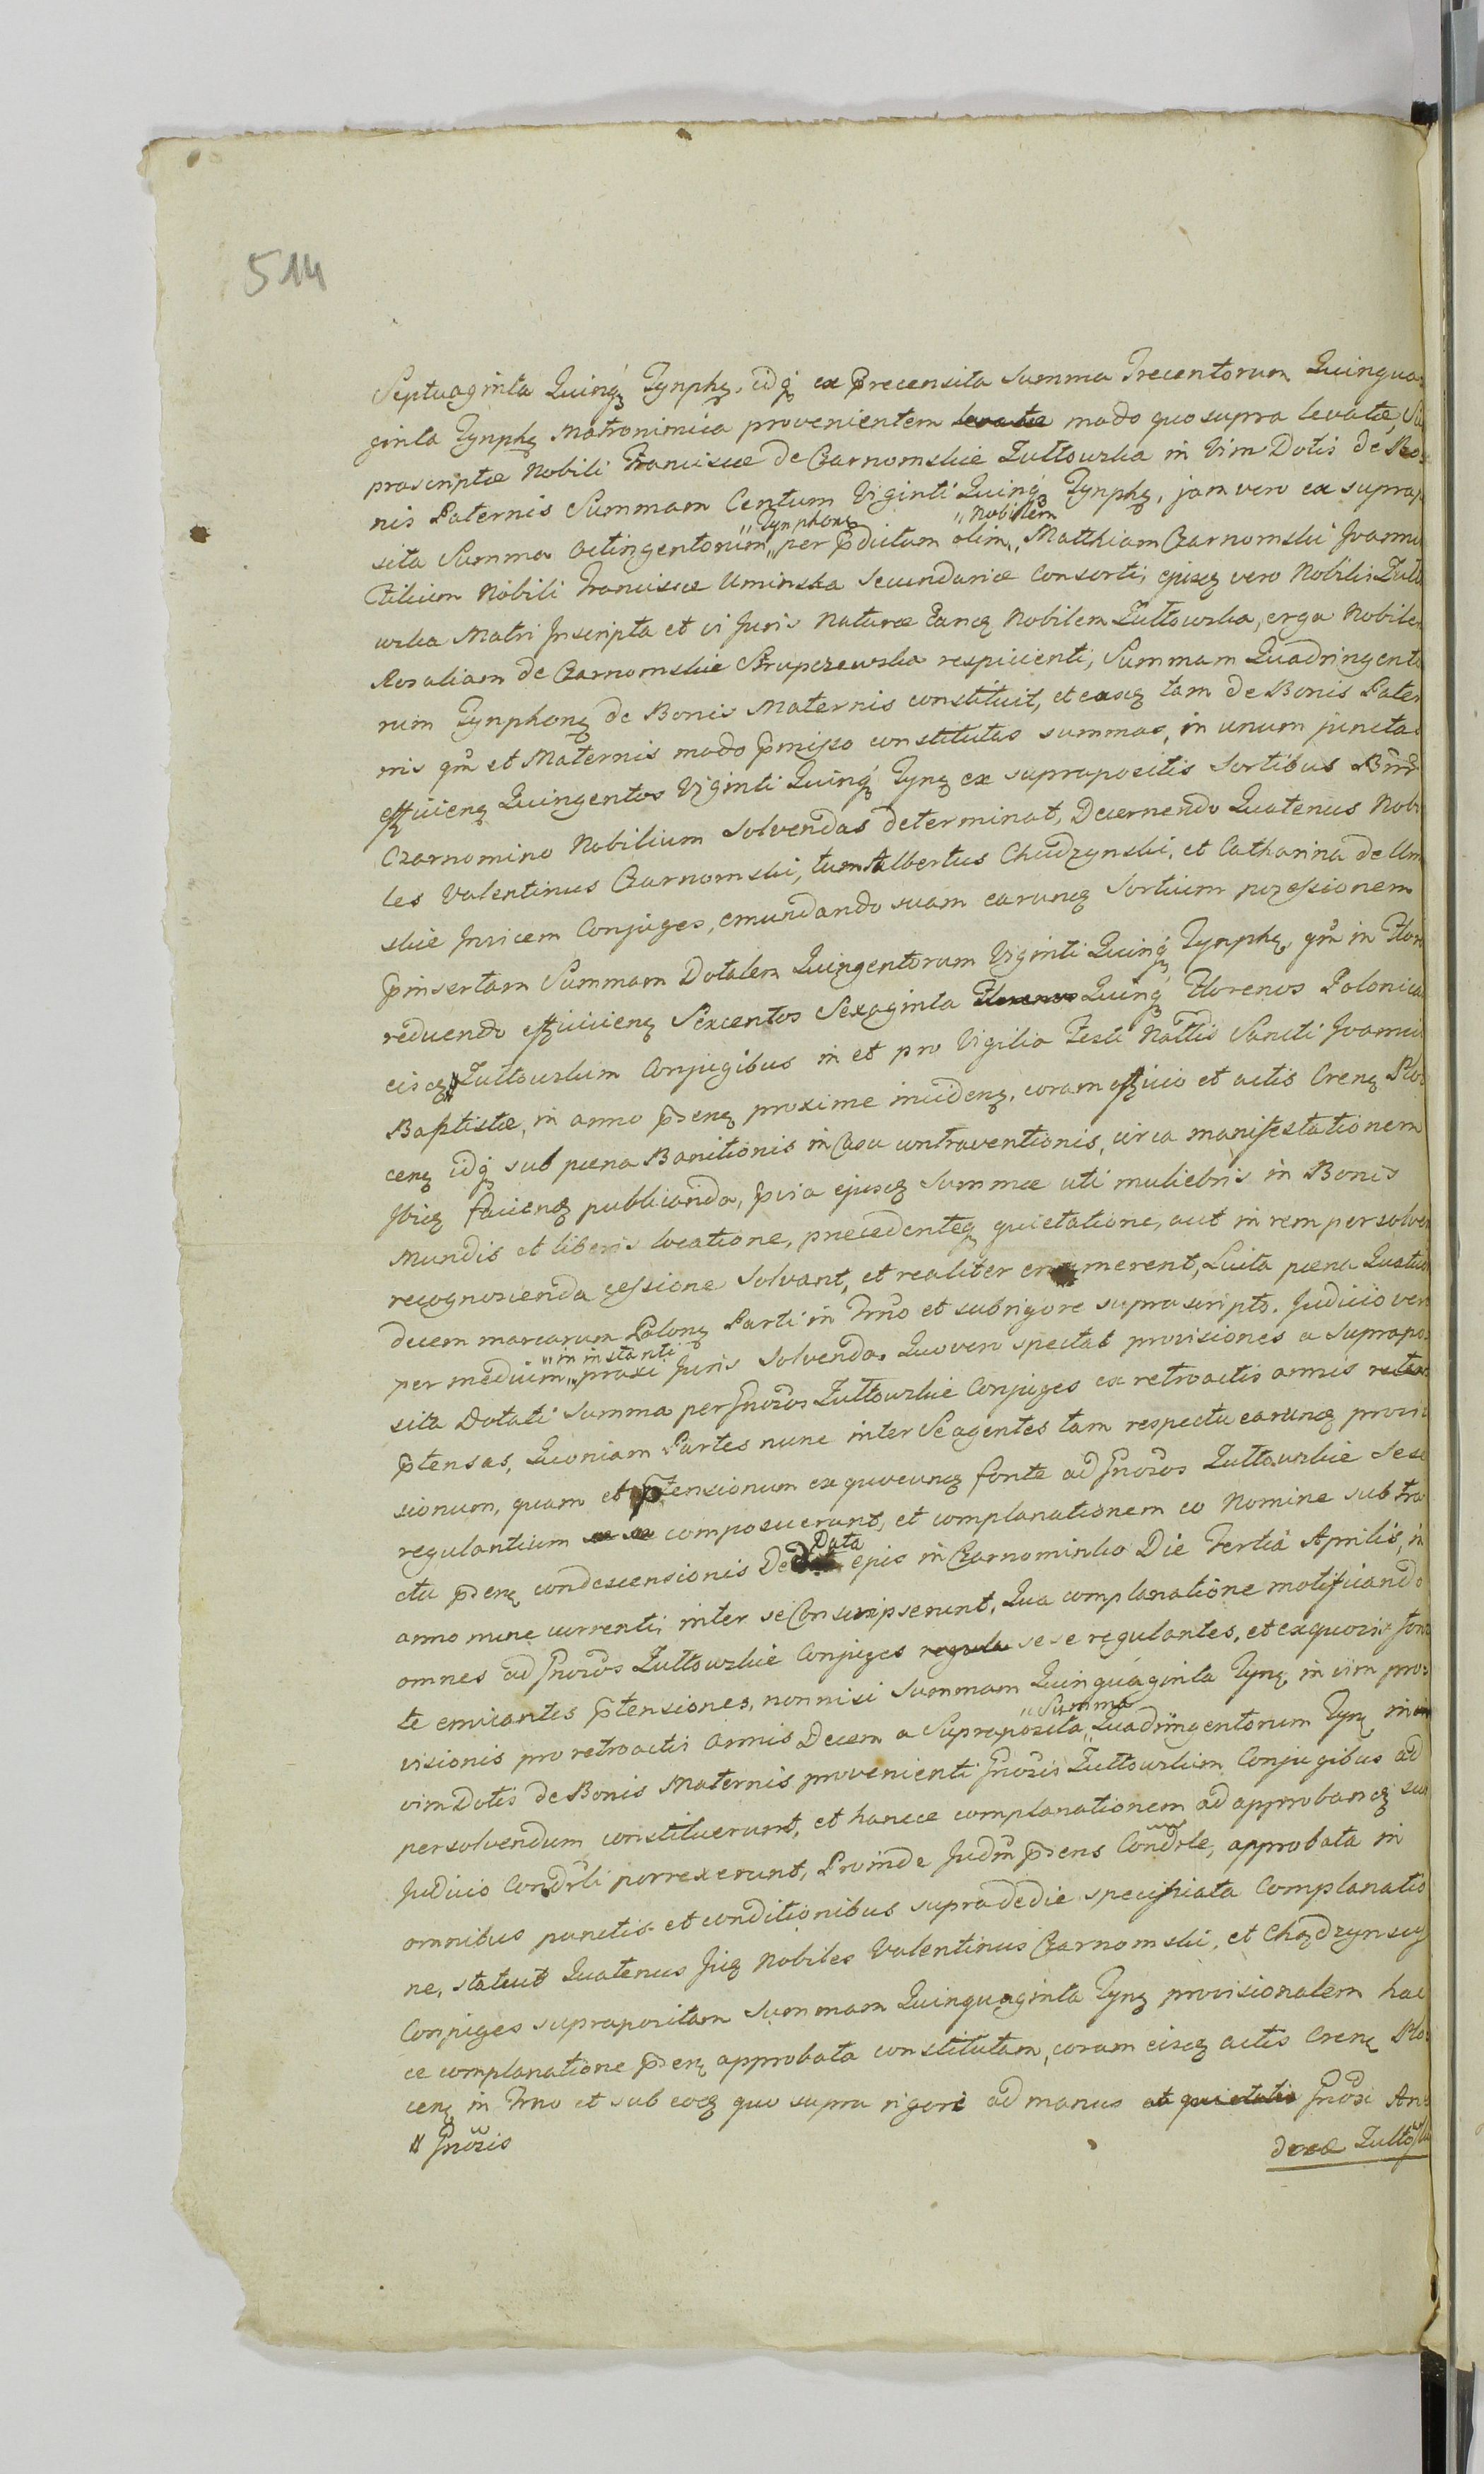 514
Septuaginta Quinqꝫ Tynphꝫ, idqꝫ ex p̄recensita summa Trecentorum Quinqua-
ginta Tynphꝫ Matronimica provenientem modo quo supra levatæ, Su-
prascriptæ Nobili Franciscæ de Czarnomskie Zułtowska in Vim Dotis de Bo-
nis Paternis Summam Centum Viginti Quinqꝫ Tynphꝫ, jam vero ex suprapo-
sita Summa Octingentorum „Tynphonꝫ per p̄dictum olim „Nobilem Matthiam Czarnomski Joannis
Filium Nobili Franciscæ Uminska Secundariæ Consorti, ejusqꝫ vero Nobilis Zułto
wska Matri Inscripta et vi Juris Naturæ Eancꝫ Nobilem Zułtowska, erga Nobilem
Rosaliam de Czarnomskie Skrupczewska respicienti, Summam Quadringento
rum Tynphonꝫ de Bonis Maternis constituit, et easqꝫ tam de Bonis Pater
nis qm̄ et Maternis modo p̄misso constitutas summas, in unum junctas
efficienꝫ Quingentos Viginti Quinqꝫ Tynꝫ ex suprapositis Sortibus Bnrū
Czarnomino Nobilium Solvendas determinat, Decernendo Quatenus Nobi
les Valentinus Czarnomski, tum Albertus Chudzynski, et Catharina de Um
skie Invicem Conjuges, emundando suam earuncꝫ Sortium pozessionem
p̄insertam Summam Dotalem Quingentorum Viginti Quinqꝫ Tynphꝫ, qm̄ in Flor
reducendo efficienꝫ Sexcentos Sexaginta Quinqꝫ Florenos Polonica
eiscꝫ Zułtowskim Conjugibus in et pro Vigilia Festi Nattis Sancti Joannis
Baptistæ, in anno p̄senꝫ proxime incidenꝫ, coram officio et actis Crenꝫ Plo
cenꝫ idqꝫ sub pœna Banitionis in Casu contraventionis, circa manifestationem
Ibicꝫ facienꝫ publicanda, p̄via ejuscꝫ Summæ uti muliebris in Bonis
Mundis et liberis locatione, precedenteqꝫ quietatione, aut in rem persolven
recognoscenda cessione Solvant, et realiter enumerent, Luita pœna Quatuor
decem marcarum Polonꝫ Parti in Trno et sub rigore supra scripto. Judicio vero
per medium „in instanti praxi Juris Solvenda. Quo vero spectat provisiones a Suprapo
sita Dotali Summa per Gnōsos Zułtowskie Conjuges ex retroactis annis
p̄tensas, Quoniam Partes nunc inter Se agentes tam respectu earuncꝫ provi
sionum, quam et p̄tensionum ex quocuncꝫ fonte ad Gnōsos Zułtowskie sese
regulantium composuerunt, et complanationem eo Nomine sub tra
ctu p̄senꝫ condescensionis Data epis in Czarnominko Die Tertia Aprilis, in
anno nunc currenti inter se Conscripserunt, Qua complanatione motificando
omnes ad Gnōsos Zułtowskie Conjuges sese regulantes, et ex quovis fon
te emicantes p̄tensiones, nonnisi Summam Quinquaginta Tynꝫ in vim pro-
visionis pro retroactis Annis Decem a Supraposita „Summa Quadringentorum Tynꝫ in
vim Dotis de Bonis Maternis provenienti Gnōsis Zułtowskim Conjugibus ad
persolvendum constituerunt, et hancce complanationem ad approbancꝫ suo
Judicio Condrli porrexerunt, Proinde Judm̄ p̄sens Condrle, approbata in
omnibus punctis et conditionibus supra dedie specificata Complanatio
ne, statuit Quatenus Jicꝫ Nobiles Valentinus Czarnomski, et Chądzynscy
Conjuges suprapositam Summam Quinquaginta Tynꝫ provisionalem hac
ce complanatione p̄senꝫ approbata constitutam, coram eiscꝫ actis Crenꝫ Plo
cenꝫ in Trno et sub eocꝫ quo supra rigore ad manus Gnōsi An
Gnōsis
dreæ Zułto